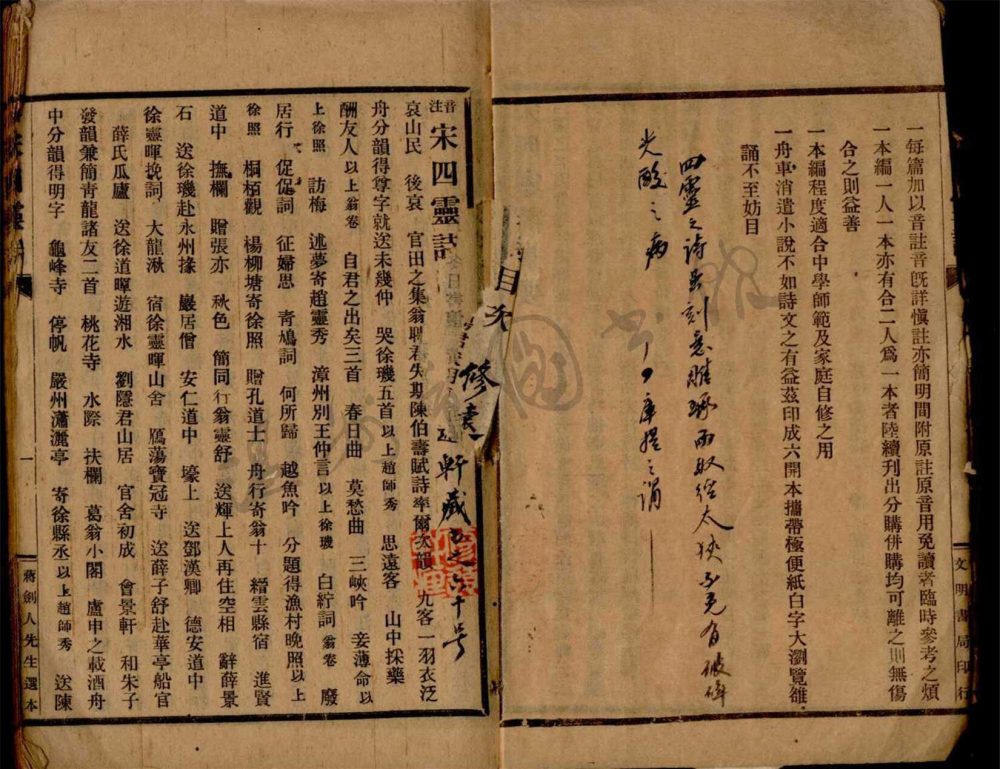 一每篇加以音註音旣詳愼註亦簡明間附原註原音用免讀者臨時參考之煩
一本編一人一本亦有合二人爲一本者陸續刊出分購併購均可離之則無傷
合之則益善
一本編程度適合中學師範及家庭自修之用
一舟車消遣小說不如詩文之有益茲印成六開本攜帶極便紙白字大瀏覽雒
誦不至妨目
四靈之詩 刻意雕琢而取徑太狹 免有破碎
尖酸之病
文明書局印行
目次
音注 宋四靈詩
修遠軒藏 十号
哀山民 後哀 官田之集翁聘君失期陳伯壽賦詩率爾次韻 九客一羽衣泛
舟分韻得尊字就送朱幾仲 哭徐璣五首以上趙師秀 思遠客 山中採藥
酬友人以上翁卷 自君之出矣三首 春日曲 莫愁曲 三峽吟 妾薄命以
上徐照 訪梅 述夢寄趙靈秀 漳州別王仲言以上徐璣 白紵詞翁卷 廢
居行 促促詞 征婦思 青鳩詞 何所歸 越魚吟 分題得漁村晚照以上
徐照 桐栢觀 楊柳塘寄徐照 贈孔道士 舟行寄翁十 縉雲縣宿 進賢
道中 撫欄 贈張亦 秋色 簡同行翁靈舒 送輝上人再住空相 辭薛景
石 送徐璣赴永州掾 巖居僧 安仁道中 壕上 送鄧漢卿 德安道中
徐靈暉挽詞 大龍湫 宿徐靈暉山舍 鴈蕩寶冠寺 送薛子舒赴華亭船官
薛氏瓜廬 送徐道暉遊湘水 劉隱君山居 官舍初成 會景軒 和朱子
發韻兼簡青龍諸友二首 桃花寺 水際 扶欄 葛翁小閣 盧申之載酒舟
中分韻得明字 龜峰寺 停帆 嚴州瀟灑亭 寄徐縣丞以上趙師秀 送陳
一
蔣劍人先生選本